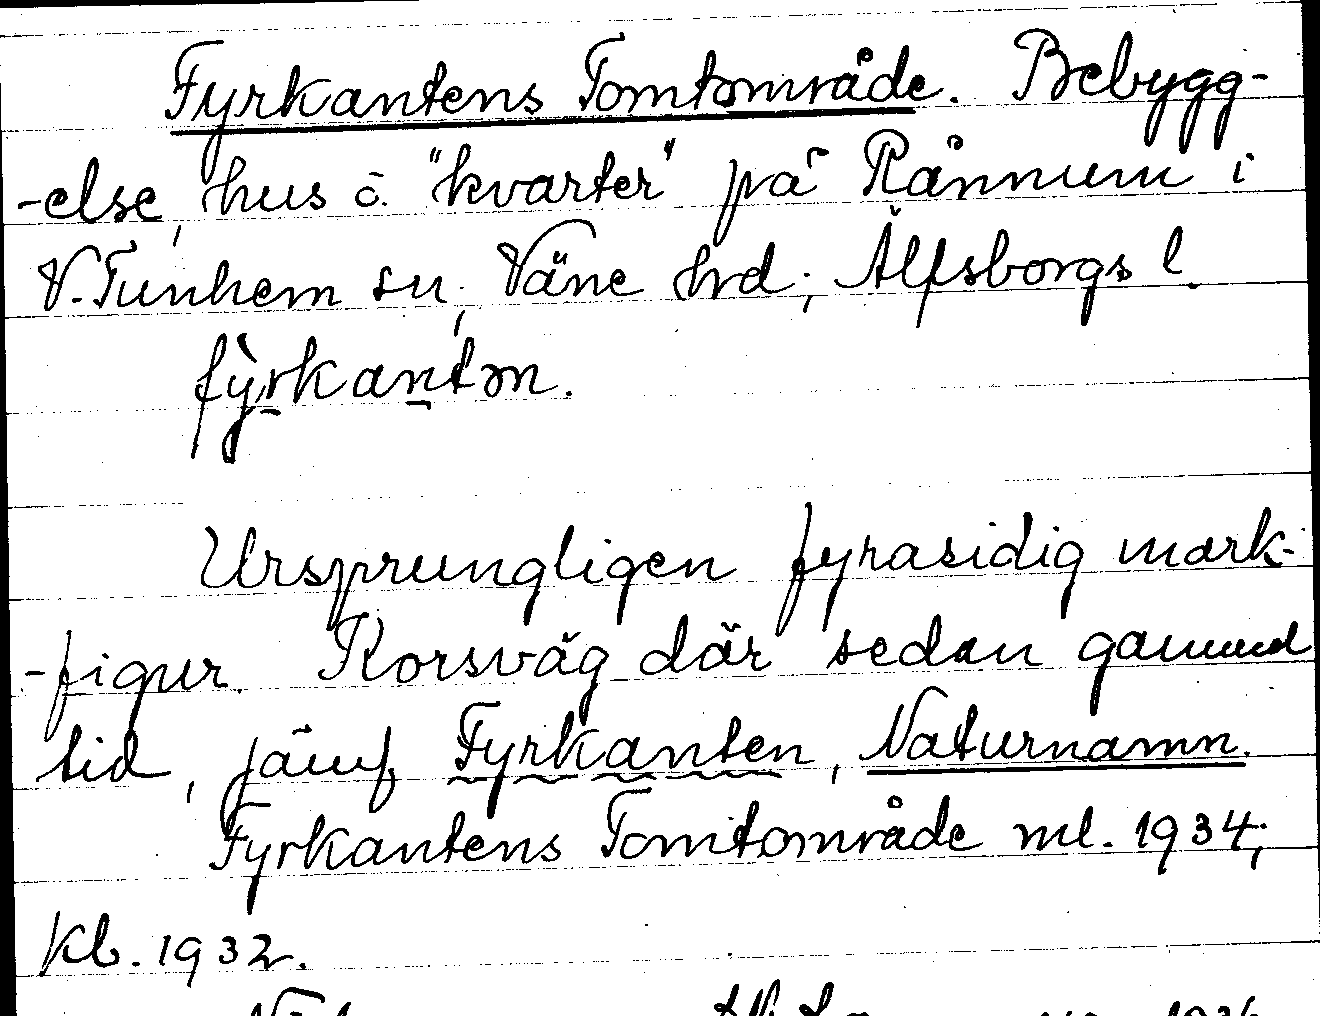 Fyrkantens Tomtområde. Bebygg-
-else, hus o. "kvarter" på Rånnum i
V. Tunhem sn, Väne hrd; Älfsborgs l.
fy̆rkantən.
Ursprungligen fyrasidig mark-
-figur. Korsväg där sedan gammal
tid, jämf. Fyrkanten, Naturnamn.
Fyrkantens Tomtområde ml. 1934;
Kb. 1932.